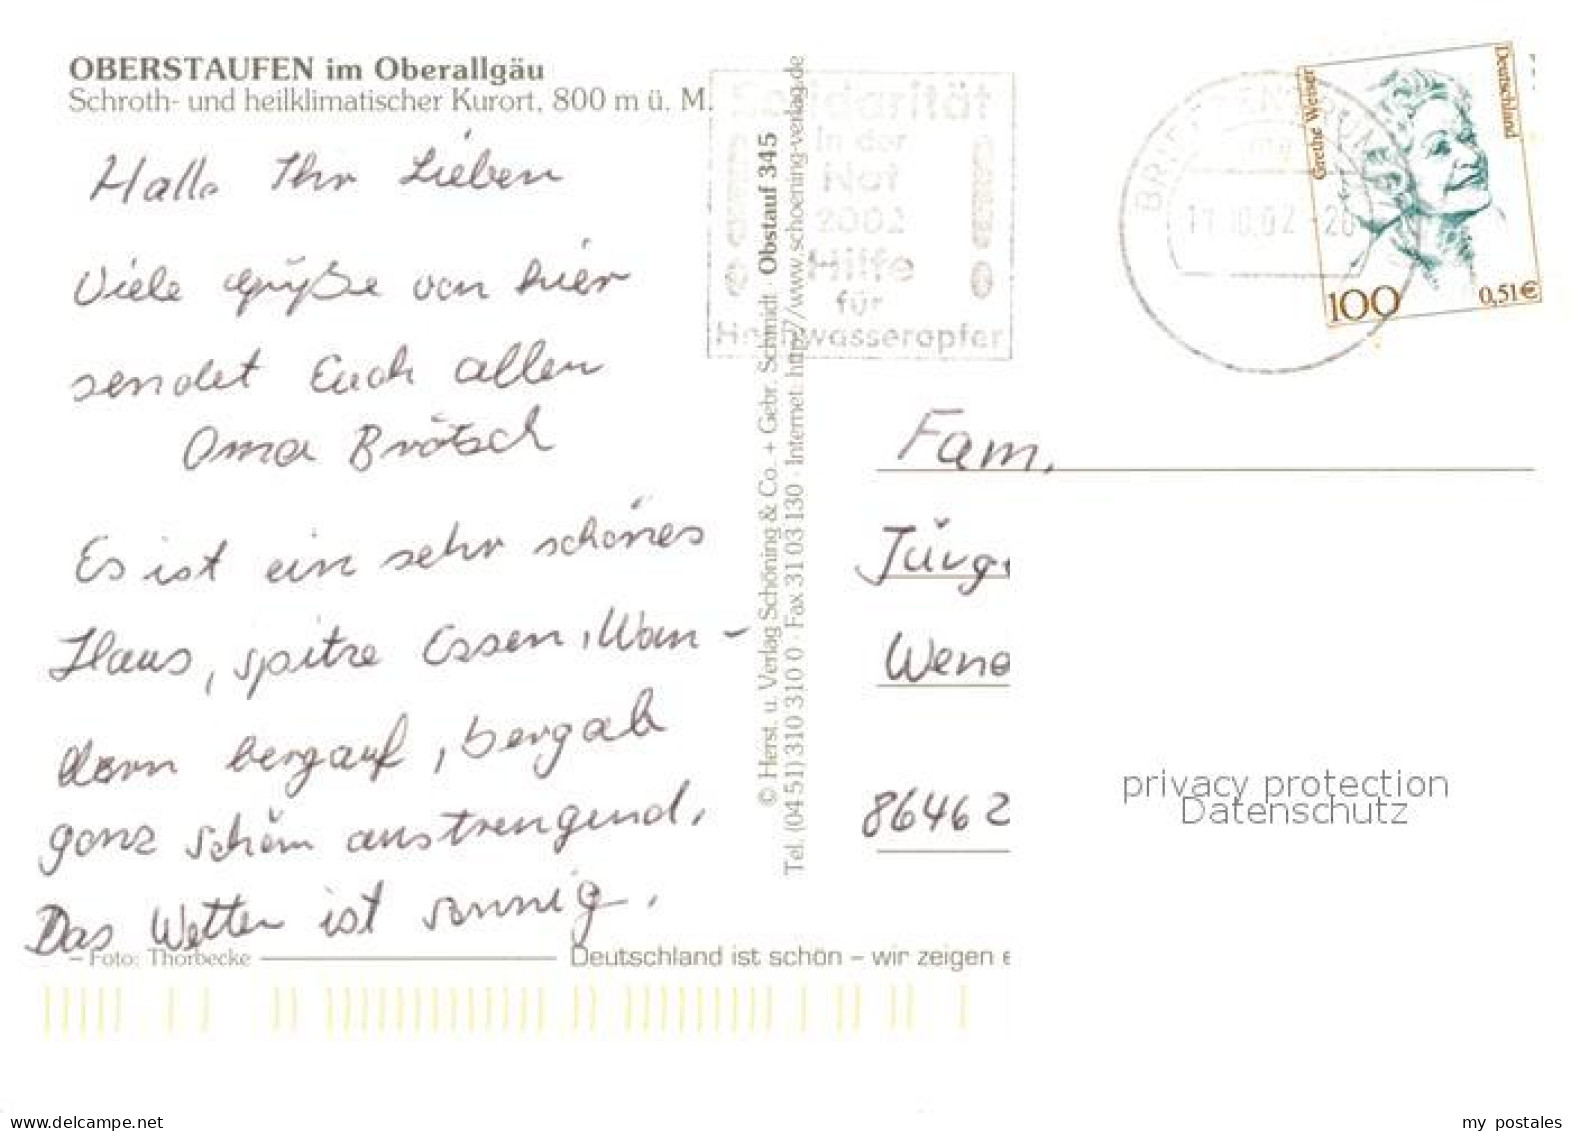 OBERSTAUFEN im Oberallgäu
Schroth- und heilklimatischer Kurort, 800 m ü. M.
Hallo Ihr Lieben
Viele Grüße von hier
sendet Euch allen
Oma Brötsch
Es ist ein sehr schönes
Haus, spitze Essen, Wan-
dern bergauf, bergab
ganz schön anstrengend.
Das Wetter ist sonnig.
Foto: Thorbecke
Deutschland ist schön – wir zeigen e
© Herst. u. Verlag Schöning & Co. + Gebr. Schmidt · Obstauf 345
Tel. (04 51) 310 310 0 · Fax 31 03 130 · Internet: http://www.schoening-verlag.de
Solidarität
in der
Not
2002
Hilfe
für
Hochwasseropfer
BRIEFZENTRUM
11.10.02 - 20
Grethe Weiser
Deutschland
100
0,51€
Fam.
Jürg
Wend
86462
privacy protection
Datenschutz
delcampe.net
my_postales